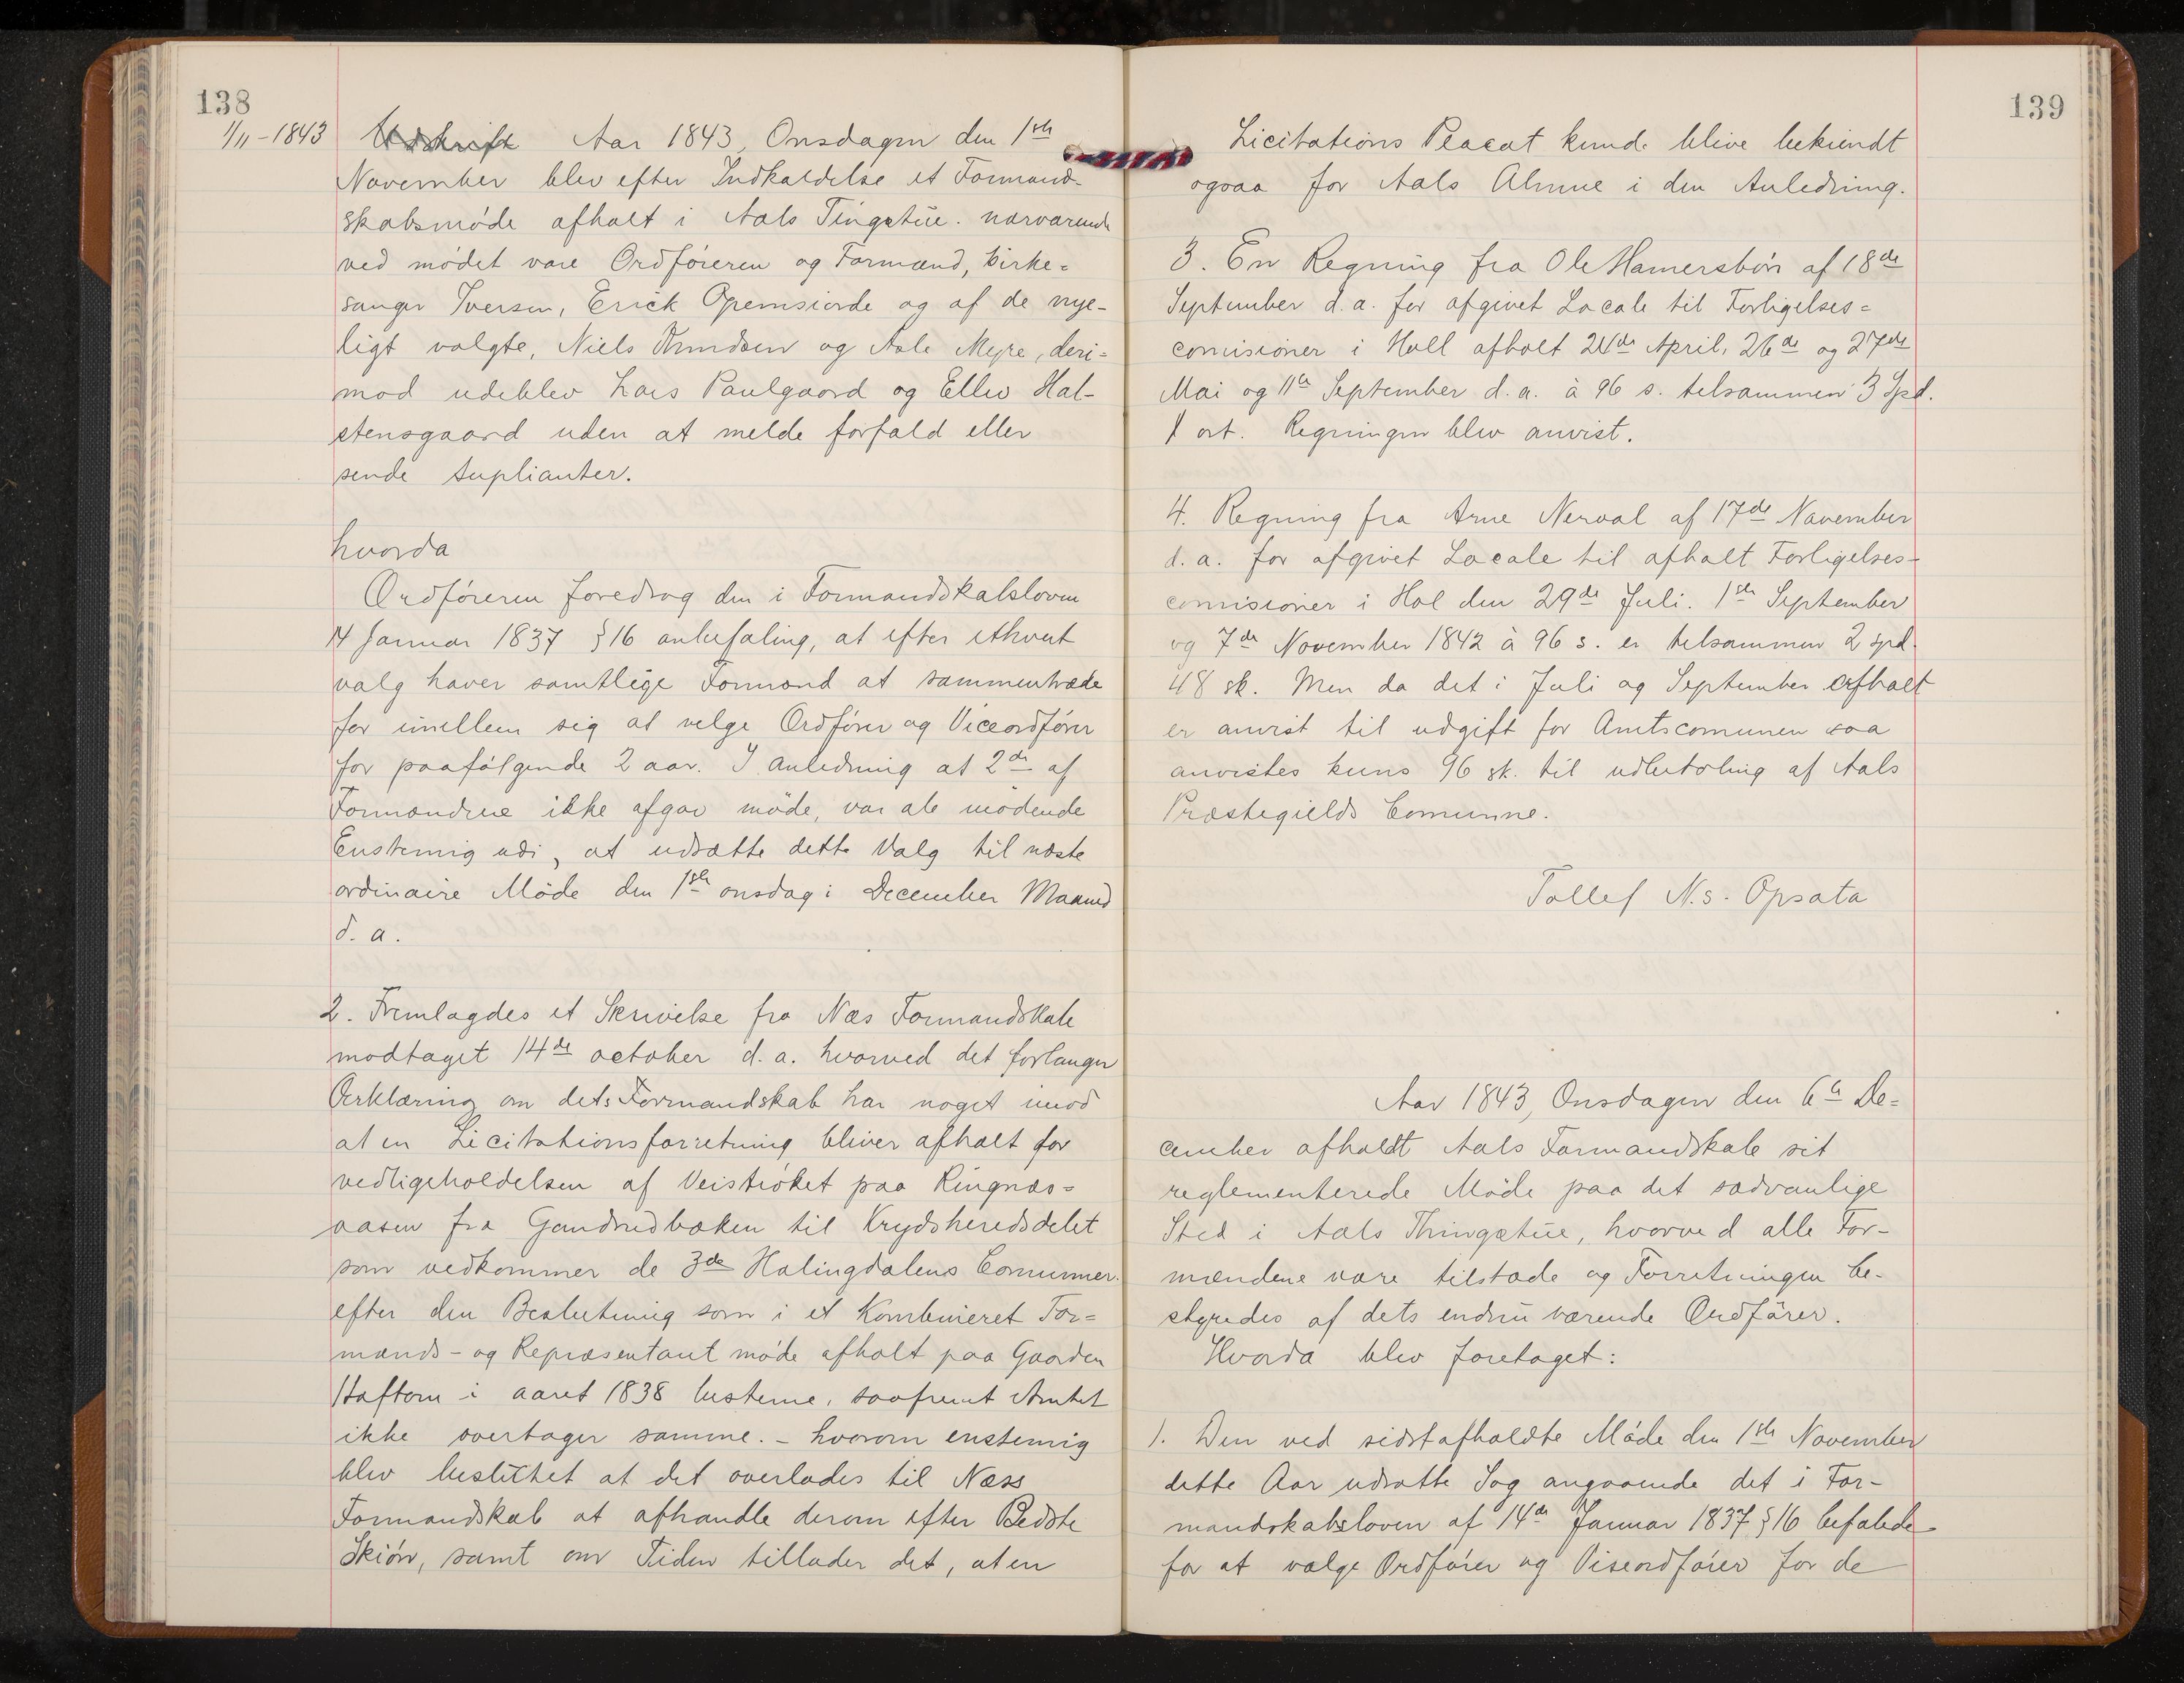 138
1/11-1843
Aar 1843, Onsdagen den 1ste
November blev efter Indkaldelse et Formand-
skabsmöde afholt i Aals Tingstue. nærværende
ved mödet vare Ordföreren og Formænd, kirke=
sanger Iversen, Erick Opemsiorde og af de nye-
ligt valgte, Niels Amundsen og Asle Myre, deri=
mod udeblev Lars Paulgaard og Ellev Hal-
stensgaard uden at melde forfald eller
sende suplianter.
hvorda
Ordföreren foredrog den i Formandskabsloven
14 Januar 1837 § 16 anbefaling, at efter ethvert
valg haver samtlige Formænd at sammentræde
for imellem sig at velge Ordförer og Viceordförer
for paafölgende 2 aar. I anledning at 2de af
Formændene ikke afgav möde, var ale mödende
Enstemig udi, at udsætte dette Valg til næste
ordinaire Möde den 1ste onsdag i December Maaned
d. a.
2. Fremlagdes et Skrivelse fra Næs Formandskab
modtaget 14de october d. a. hvorved det forlanger
Erklæring om dets Formandskab har noget imod
at en Licitationsforretning bliver afholt for
vedligeholdelsen af Veiströket paa Ringnæs=
aasen fra Gandrudbækен til Krydsheredsdelet
som vedkommer de 3de Halingdalens Comunner.
efter den Beslutning som i et Kombineret For=
mands- og Repræsentant möde afholt paa Gaarden
Haftorn i aaret 1838 besteme, saafremt Amtet
ikke overtager samme. - hvorom enstemig
blev besluttet at det overlades til Næss
Formandskab at afhandle derom efter Bedste
Skiön, samt om Tiden tillader det, at en
139
Licitations Placat kunde blive bekiendt
ogsaa for Aals Almue i den Anledning.
3. En Regning fra Ole Hamersbön af 18de
September d. a. for afgivet Locale til Forligelses=
comisioner i Holl afholt 24de April, 26de og 27de
Mai og 11te September d. a. à 96 s. telsammen 3 Spd.
1 ort. Regningen blev anvist.
4. Regning fra Arne Nerval af 17de November
d. a. for afgivet Locale til afholt Forligelses-
comisioner i Hol den 29de Juli. 1ste September
og 7de November 1842 à 96 s. er telsammen 2 spd.
48 sk. Men da det i Juli og September afholt
er anvist til udgift for Amtscomunen saa
anvistes kuns 96 sk. til udbetaling af Aals
Præstegields Comunne.
Tollef N.s. Opsata
Aar 1843, Onsdagen den 6te De=
cember afholdt Aals Formandskab sit
reglementerede Möde paa det sædvanlige
Sted i Aals Thingstue, hvorved alle For-
mændene vare tilstæde og Forretningen be-
styredes af dets endnu værende Ordförer.
Hvorda blev foretaget:
1. Den ved sidstafholdte Möde den 1ste November
dette Aar udsatte Sag angaaende det i For-
mandskabsloven af 14de Januar 1837 § 16 befalede
for at vælge Ordförer og Viseordförer for de